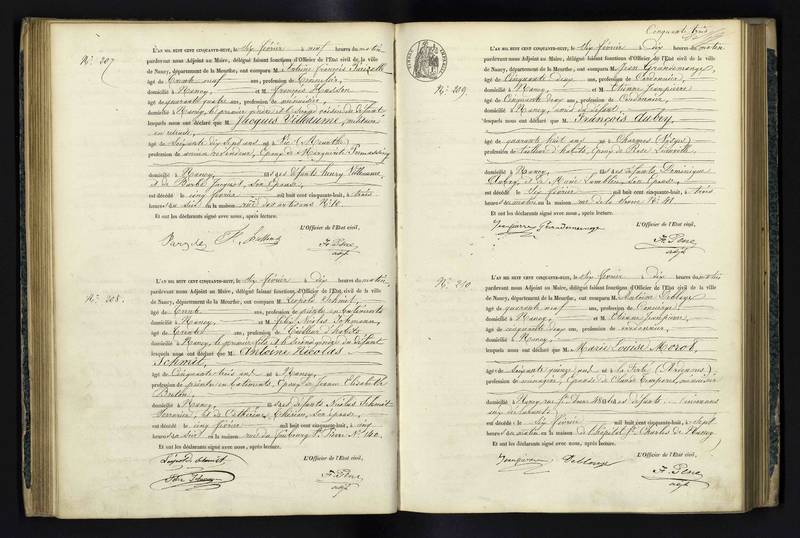 N.° 207
L'AN MIL HUIT CENT CINQUANTE-HUIT, le six février à neuf heures du matin
pardevant nous Adjoint au Maire, délégué faisant fonctions d'Officier de l'État civil de la ville
de Nancy, département de la Meurthe, ont comparu M. Antoine François
âgé de trente neuf ans, profession de
domicilié à Nancy, et M. François Husson
âgé de quarante quatre ans, profession de menuisier,
domicilié à Nancy, le premier gendre et le second voisin du défunt
lesquels nous ont déclaré que M. Jacques Villaume, militaire
en retraite,
âgé de soixante dix sept ans né à Vic (Meurthe)
profession de époux de Marguerite
domicilié à Nancy, fils des défunts Henry Villaume
et de Barbe Jacquot, son épouse
est décédé le cinq février mil huit cent cinquante-huit, à trois
heures du soir en la maison rue des artisans N° 10.
Et ont les déclarants signé avec nous, après lecture.
L'Officier de l'État civil,
N.° 208.
L'AN MIL HUIT CENT CINQUANTE-HUIT, le six février à dix heures du matin
pardevant nous Adjoint au Maire, délégué faisant fonctions d'Officier de l'État civil de la ville
de Nancy, département de la Meurthe, ont comparu M. Léopold Schmit,
âgé de trente ans, profession de peintre en bâtiments
domicilié à Nancy, et M. Nicolas
âgé de trente ans, profession de tailleur d'habits
domicilié à Nancy, le premier fils et le second gendre du défunt
lesquels nous ont déclaré que M. Antoine Nicolas
Schmit,
âgé de cinquante trois ans né à Nancy,
profession de peintre en bâtiments, époux de Jeanne Elisabeth
domicilié à Nancy, fils des défunts Nicolas Schmit
et de Catherine son épouse
est décédé le cinq février mil huit cent cinquante-huit, à cinq
heures du soir en la maison rue du faubourg St Pierre N° 140.
Et ont les déclarants signé avec nous, après lecture.
L'Officier de l'État civil,
Léopold Schmit
Cinquante trois
N.° 209
L'AN MIL HUIT CENT CINQUANTE-HUIT, le six février à dix heures du matin
pardevant nous Adjoint au Maire, délégué faisant fonctions d'Officier de l'État civil de la ville
de Nancy, département de la Meurthe, ont comparu M. Jean Grandemange,
âgé de cinquante deux ans, profession de cordonnier,
domicilié à Nancy, et M. Etienne Jeanpierre
âgé de cinquante deux ans, profession de cordonnier,
domicilié à Nancy, amis du défunt,
lesquels nous ont déclaré que M. François Aubry,
âgé de quarante huit ans né à Charmes (Vosges)
profession de tailleur d'habits, époux de Rose
domicilié à Nancy, fils des défunts Dominique
Aubry, et de Marie son épouse,
est décédé le six février mil huit cent cinquante-huit, à trois
heures du matin en la maison rue de la N° 41.
Et ont les déclarants signé avec nous, après lecture.
L'Officier de l'État civil,
Jeanpierre Grandemange
N.° 210
L'AN MIL HUIT CENT CINQUANTE-HUIT, le six février à dix heures du matin
pardevant nous Adjoint au Maire, délégué faisant fonctions d'Officier de l'État civil de la ville
de Nancy, département de la Meurthe, ont comparu M. Antoine
âgé de quarante neuf ans, profession de concierge,
domicilié à Nancy, et M. Etienne Jeanpierre,
âgé de cinquante deux ans, profession de cordonnier,
domicilié à Nancy,
lesquels nous ont déclaré que Marie Louise Morot,
âgée de soixante quinze ans née à
profession de ménagère, épouse de Claude
domicilié à Nancy, rue St
est décédée le six février mil huit cent cinquante-huit, à sept
heures du matin en la maison de l'hôpital St Charles de Nancy
Et ont les déclarants signé avec nous, après lecture.
L'Officier de l'État civil,
Jeanpierre